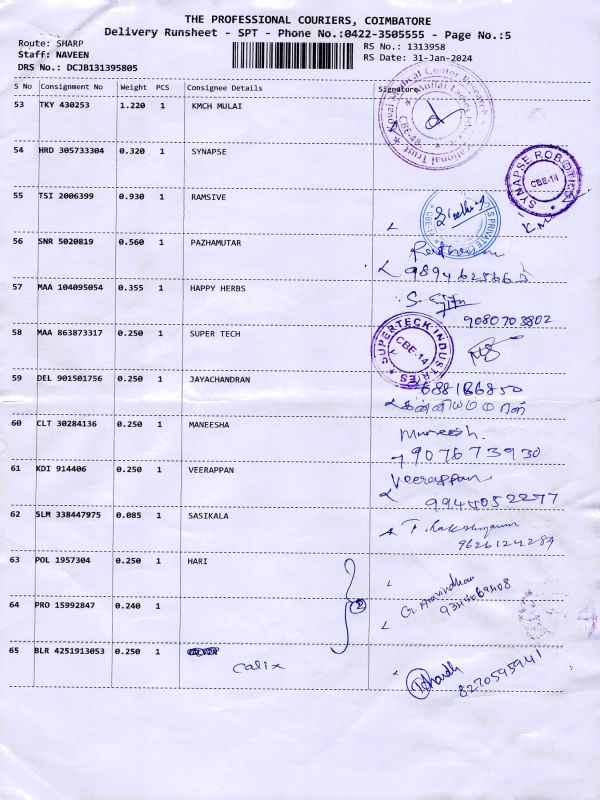 THE PROFESSIONAL COURIERS, COIMBATORE
Delivery Runsheet - SPT - Phone No.:0422-3505555 - Page No.:5
Route: SHARP
Staff: NAVEEN
DRS No.: DCJB131395805
RS No.: 1313958
RS Date: 31-Jan-2024
S No Consignment No Weight PCS Consignee Details Signature
53 TKY 430253 1.220 1 KMCH MULAI
54 HRD 305733304 0.320 1 SYNAPSE
SYNAPSE ROBOTICS CBE-14
55 TSI 2006399 0.930 1 RAMSIVE
56 SNR 5020819 0.560 1 PAZHAMUTAR
57 MAA 104095054 0.355 1 HAPPY HERBS
9080703802
58 MAA 863873317 0.250 1 SUPER TECH
SUPERTECK INDUSTRIES CBE-14
59 DEL 901501756 0.250 1 JAYACHANDRAN
60 CLT 30284136 0.250 1 MANEESHA
Muneesh.
907673930
61 KDI 914406 0.250 1 VEERAPPAN
Veerappan
9944052277
62 SLM 338447975 0.085 1 SASIKALA
9626124284
63 POL 1957304 0.250 1 HARI
2
64 PRO 15992847 0.240 1
G. Aravindhan
65 BLR 4251913053 0.250 1
calix
8270595941